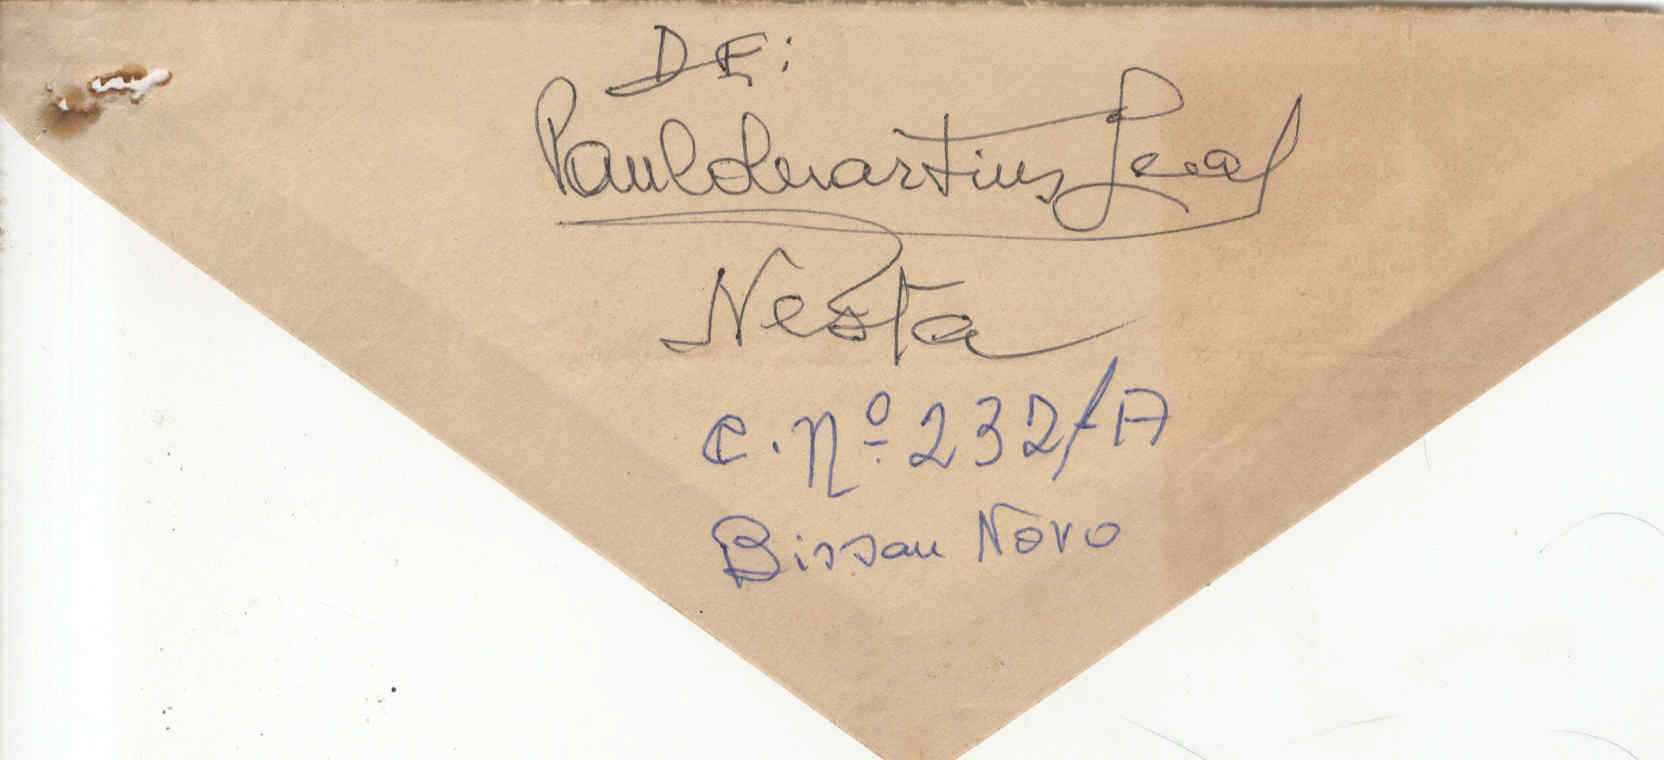 DE:
Paul Quartius Leal
Nesta
C. nº 232/A
Bissau Novo